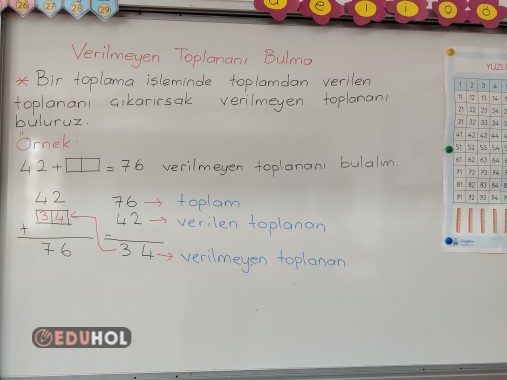 26 27 28 29
a e ı i o ö
Verilmeyen Toplananı Bulma
* Bir toplama işleminde toplamdan verilen
toplananı çıkarırsak verilmeyen toplananı
buluruz.
Örnek:
42 + = 76 verilmeyen toplananı bulalım.
42
+ 34
76
76 → toplam
42 → verilen toplanan
=
34 → verilmeyen toplanan
EDUHOL
YÜZL
1 2 3 4
11 12 13 14
21 22 23 24
31 32 33 34
41 42 43 44
51 52 53 54
61 62 63 64
71 72 73 74
81 82 83 84
91 92 93 94